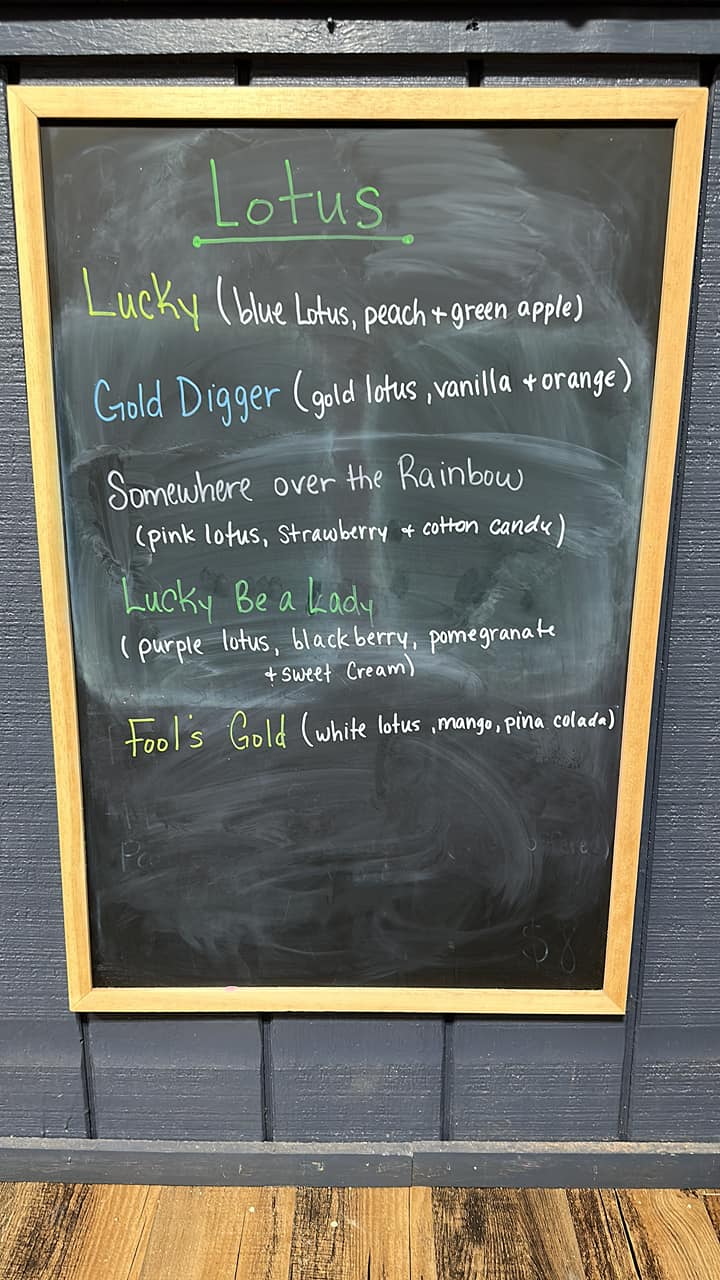 Lotus
Lucky (blue Lotus, peach + green apple)
Gold Digger (gold lotus, vanilla + orange)
Somewhere over the Rainbow
(pink lotus, Strawberry + cotton candy)
Lucky Be a Lady
(purple lotus, blackberry, pomegranate
+ sweet Cream)
Fool's Gold (white lotus, mango, pina colada)
$8